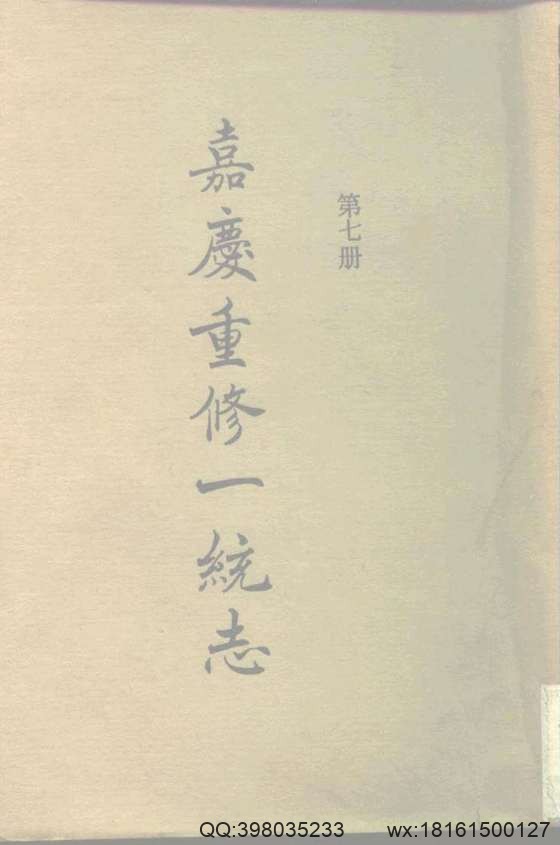 嘉慶重修一統志
第七册
QQ:398035233 wx:18161500127